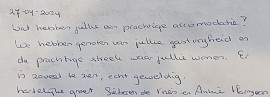 27-04-2024
Wat hebben jullie een prachtige accomodatie?
We hebben genoten van jullie gastvrijheid en
de prachtige streek waar jullie wonen. Er
is zoveel te zien, echt geweldig.
hartelijke groet Siebren de Vries en Annie